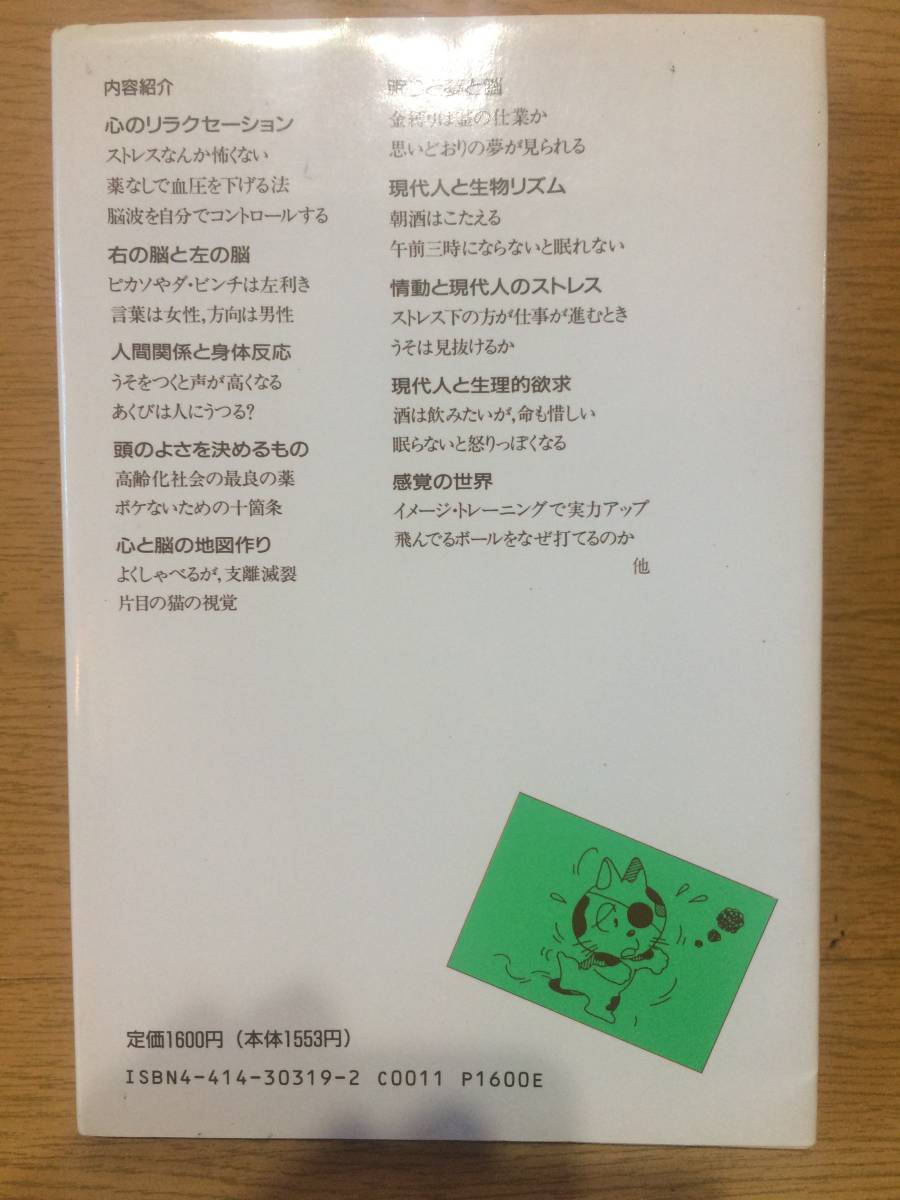 内容紹介
心のリラクセーション
ストレスなんか怖くない
薬なしで血圧を下げる法
脳波を自分でコントロールする
右の脳と左の脳
ピカソやダ・ビンチは左利き
言葉は女性，方向は男性
人間関係と身体反応
うそをつくと声が高くなる
あくびは人にうつる？
頭のよさを決めるもの
高齢化社会の最良の薬
ボケないための十箇条
心と脳の地図作り
よくしゃべるが，支離滅裂
片目の猫の視覚
と夢と脳
金縛りは霊の仕業か
思いどおりの夢が見られる
現代人と生物リズム
朝酒はこたえる
午前三時にならないと眠れない
情動と現代人のストレス
ストレス下の方が仕事が進むとき
うそは見抜けるか
現代人と生理的欲求
酒は飲みたいが，命も惜しい
眠らないと怒りっぽくなる
感覚の世界
イメージ・トレーニングで実力アップ
飛んでるボールをなぜ打てるのか
他
定価1600円（本体1553円）
ISBN4-414-30319-2 C0011 P1600E